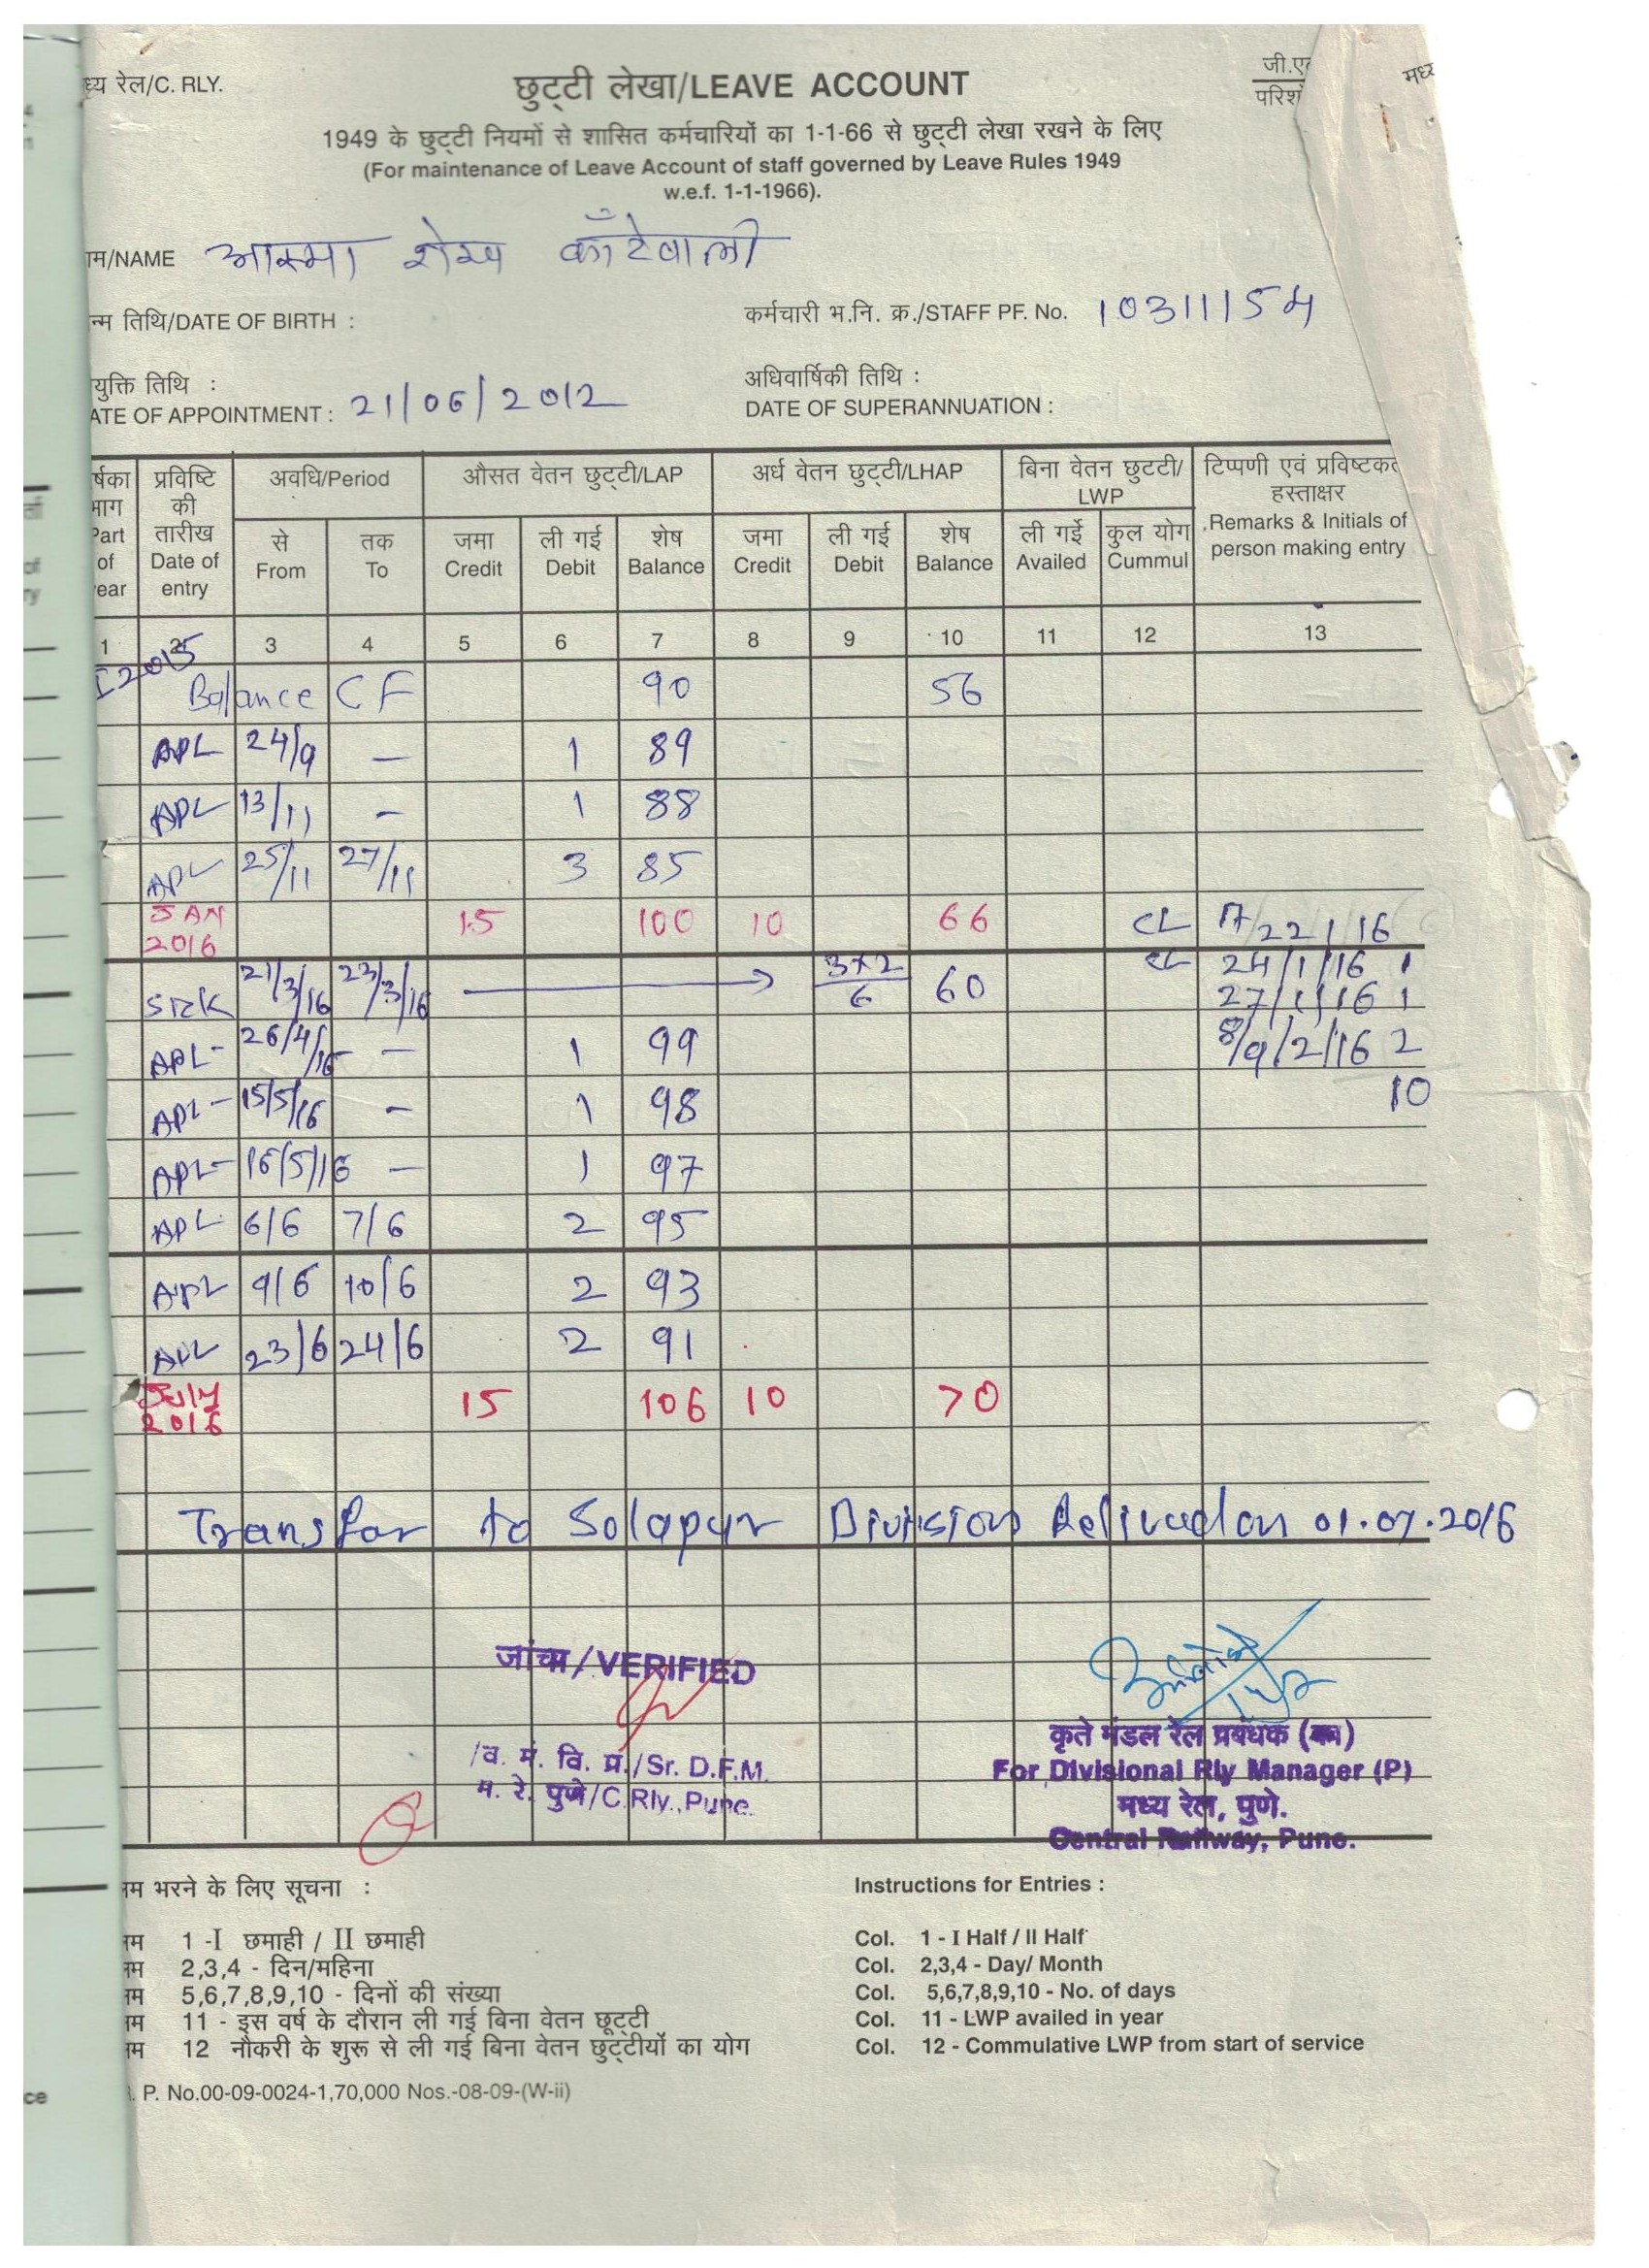 ध्य रेल/C. RLY.
छुट्टी लेखा/LEAVE ACCOUNT
जी.ए
परिश
मध्य
1949 के छुट्टी नियमों से शासित कर्मचारियों का 1-1-66 से छुट्टी लेखा रखने के लिए
(For maintenance of Leave Account of staff governed by Leave Rules 1949
w.e.f. 1-1-1966).
ाम/NAME आस्मा शेख काँटेवाला
न्म तिथि/DATE OF BIRTH :
कर्मचारी भ.नि. क्र./STAFF PF. No. 10311154
युक्ति तिथि :
ATE OF APPOINTMENT : 21/06/2012
अधिवार्षिकी तिथि :
DATE OF SUPERANNUATION :
र्षका भाग Part of ear
प्रविष्टि की तारीख Date of entry
अवधि/Period
औसत वेतन छुट्टी/LAP
अर्ध वेतन छुट्टी/LHAP
बिना वेतन छुटटी/ LWP
टिप्पणी एवं प्रविष्टकर्त हस्ताक्षर
Remarks & Initials of person making entry
से From तक To जमा Credit ली गई Debit शेष Balance जमा Credit ली गई Debit शेष Balance ली गई Availed कुल योग Cummul
1 2 3 4 5 6 7 8 9 10 11 12 13
I 2015
Balance CF 90 56
APL 24/9 — 1 89
APL 13/11 - 1 88
APL 25/11 27/11 3 85
JAN 2016 15 100 10 66 CL 22/1/16
Sick 21/3/16 23/3/16 3x2 6 60 CL 24/1/16 1
27/1/16 1
APL- 26/4/16 — 1 99 8/9/2/16 2
APL- 15/5/16 - 1 98 10
APL- 16/5/16 — 1 97
APL 6/6 7/6 2 95
APL 9/6 10/6 2 93
APL 23/6 24/6 2 91
July 2016 15 106 10 70
Transfar to Solapur Division Relived on 01.07.2016
जांचा/VERIFIED
/व. मं. वि. प्र./Sr. D.F.M.
म. रे. पुणे/C.Rly., Pune.
कृते मंडल रेल प्रबंधक (का)
For Divisional Rly Manager (P)
मध्य रेल, पुणे.
Central Railway, Pune.
म भरने के लिए सूचना :
म 1 -I छमाही / II छमाही
म 2,3,4 - दिन/महिना
म 5,6,7,8,9,10 - दिनों की संख्या
म 11 - इस वर्ष के दौरान ली गई बिना वेतन छूट्टी
म 12 नौकरी के शुरू से ली गई बिना वेतन छुट्टीयों का योग
Instructions for Entries :
Col. 1 - I Half / II Half
Col. 2,3,4 - Day/ Month
Col. 5,6,7,8,9,10 - No. of days
Col. 11 - LWP availed in year
Col. 12 - Commulative LWP from start of service
P. No.00-09-0024-1,70,000 Nos.-08-09-(W-ii)